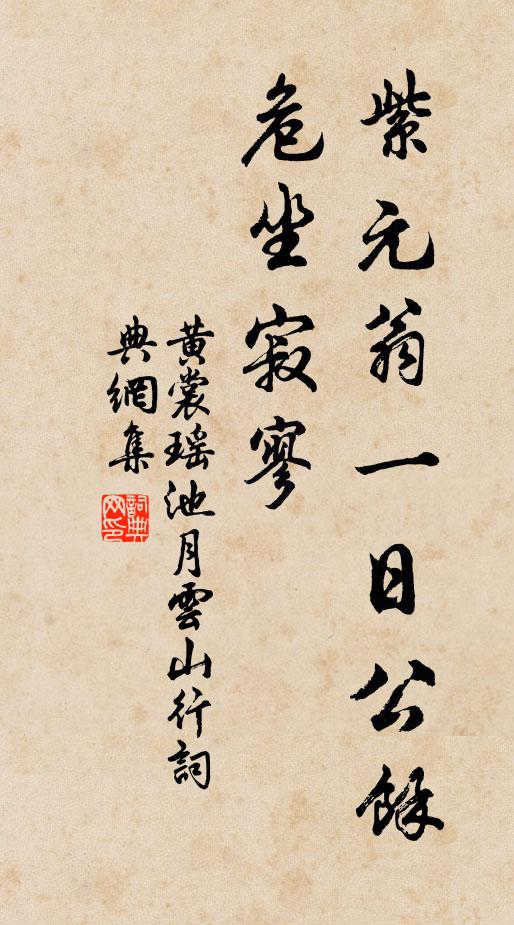 紫元翁一日公餘
危坐寂寥
黃裳瑶池月雲山行詞
典網集
詞典網印